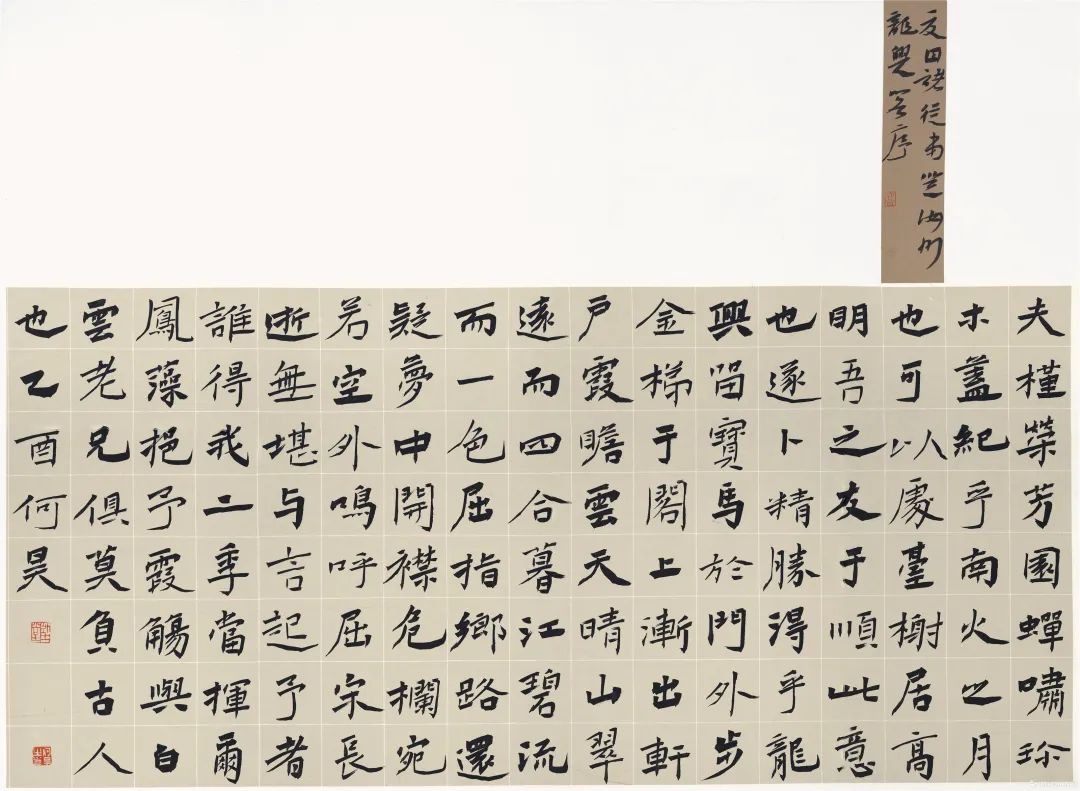 夏日諸從弟登汝州
龍興閣序
夫槿榮芳園蟬嘯珍
木蓋紀乎南火之月
也可以處臺榭居高
明吾之友于順此意
也遂卜精勝得乎龍
興留寶馬於門外步
金梯于閣上漸出軒
戶霞瞻雲天晴山翠
遠而四合暮江碧流
而一色屈指鄉路還
疑夢中開襟危欄宛
若空外嗚呼屈宋長
逝無堪与言起予者
誰得我二季當揮爾
鳳藻挹予霞觴與白
雲老兄俱莫負古人
也乙酉何昊